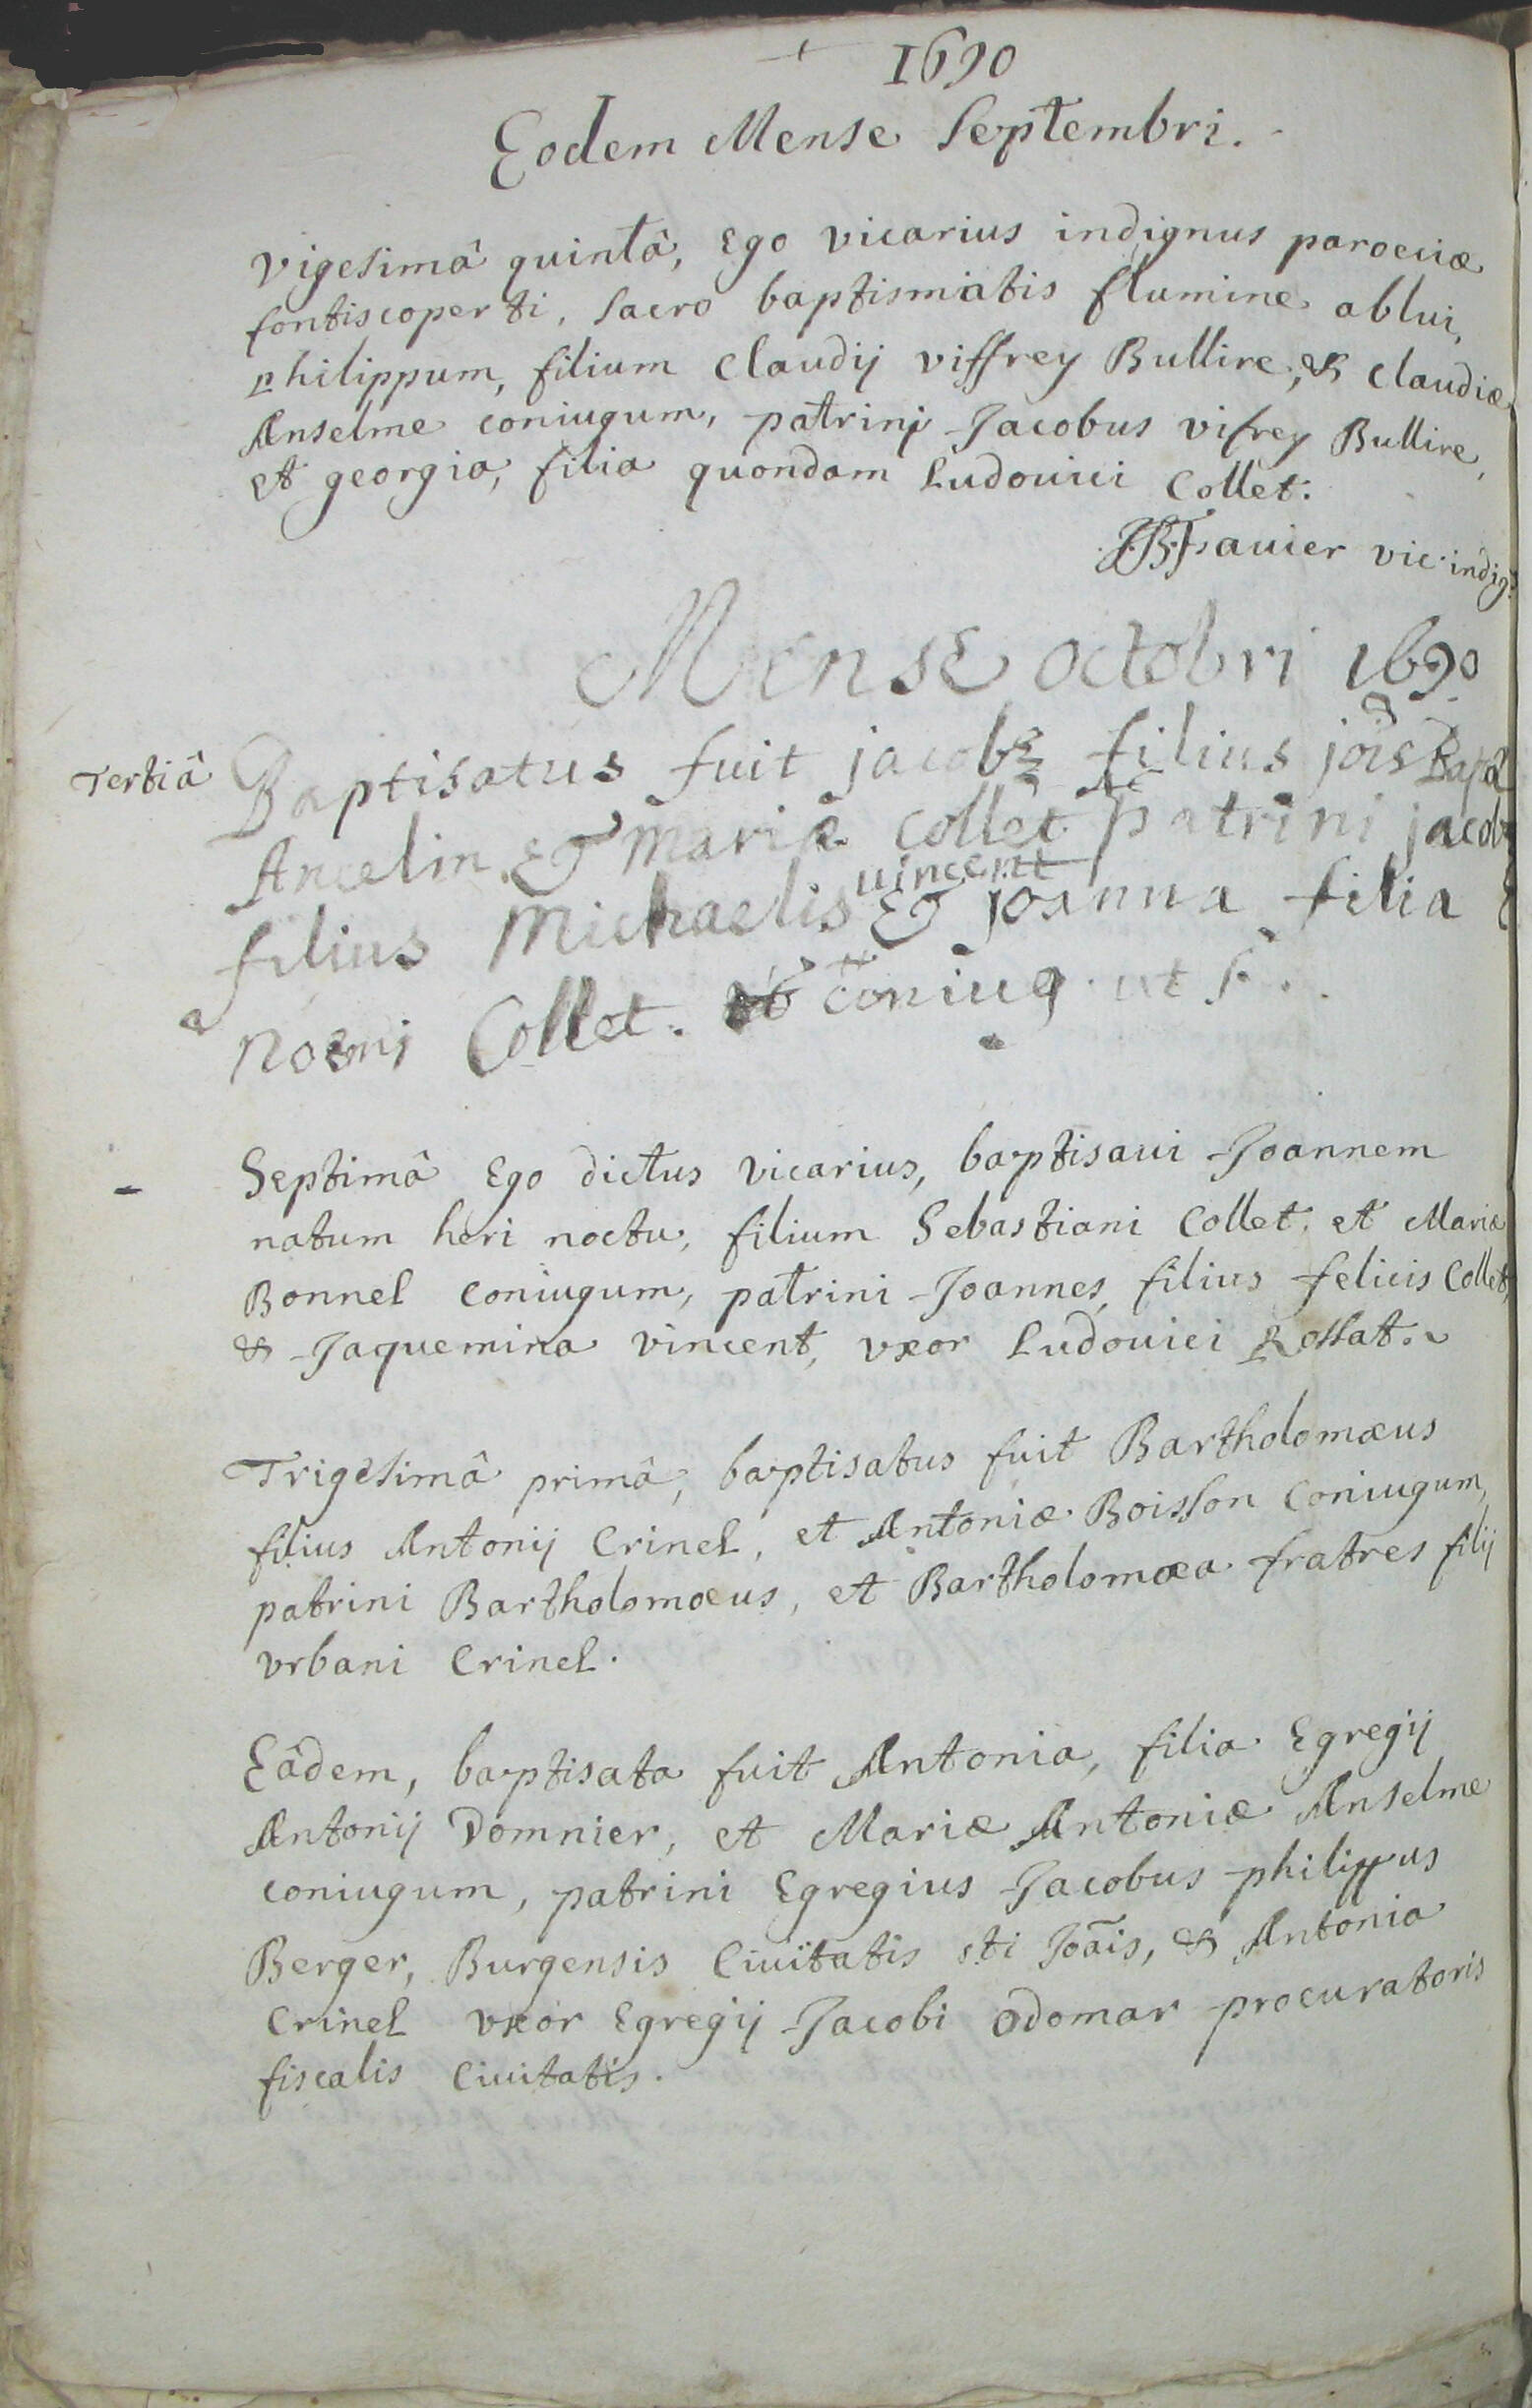 1690
Eodem Mense Septembri.
vigesimâ quintâ, Ego vicarius indignus paroeciæ
fontiscoperti, sacro baptismatis flumine ablui,
philippum, filium Claudij viffrey Bullire, & Claudiæ
Anselme coniugum, patrinj Jacobus vifrey Bullire,
et georgia, filia quondam Ludouici Collet.
vic. indigs.
Mense octobri 1690
Tertiâ Baptisatus fuit jacobus filius jois Bapã
Ancelin Et mariæ collet patrini jacobus
uincent
filius Michaelis Et joanna filia
noemi Collet. coniug. ut s.
Septimâ Ego dictus vicarius, baptisaui Joannem
natum heri noctu, filium Sebastiani Collet, et Mariæ
Bonnel coniugum, patrini Joannes, filius felicis Collet,
& Jaquemina vincent, vxor Ludouici Rossat.
Trigesimâ primâ, baptisatus fuit Bartholomæus
filius Antonij Crinel, et Antoniæ Boisson Coniugum,
patrini Bartholomœus, et Bartholomœa fratres filij
vrbani Crinel.
Eâdem, baptisata fuit Antonia, filia Egregij
Antonij Domnier, et Mariæ Antoniæ Anselme
coniugum, patrini Egregius Jacobus philippus
Berger, Burgensis Ciuitatis sti Joãis, & Antonia
Crinel vxor Egregij Jacobi Odomar procuratoris
fiscalis Ciuitatis.